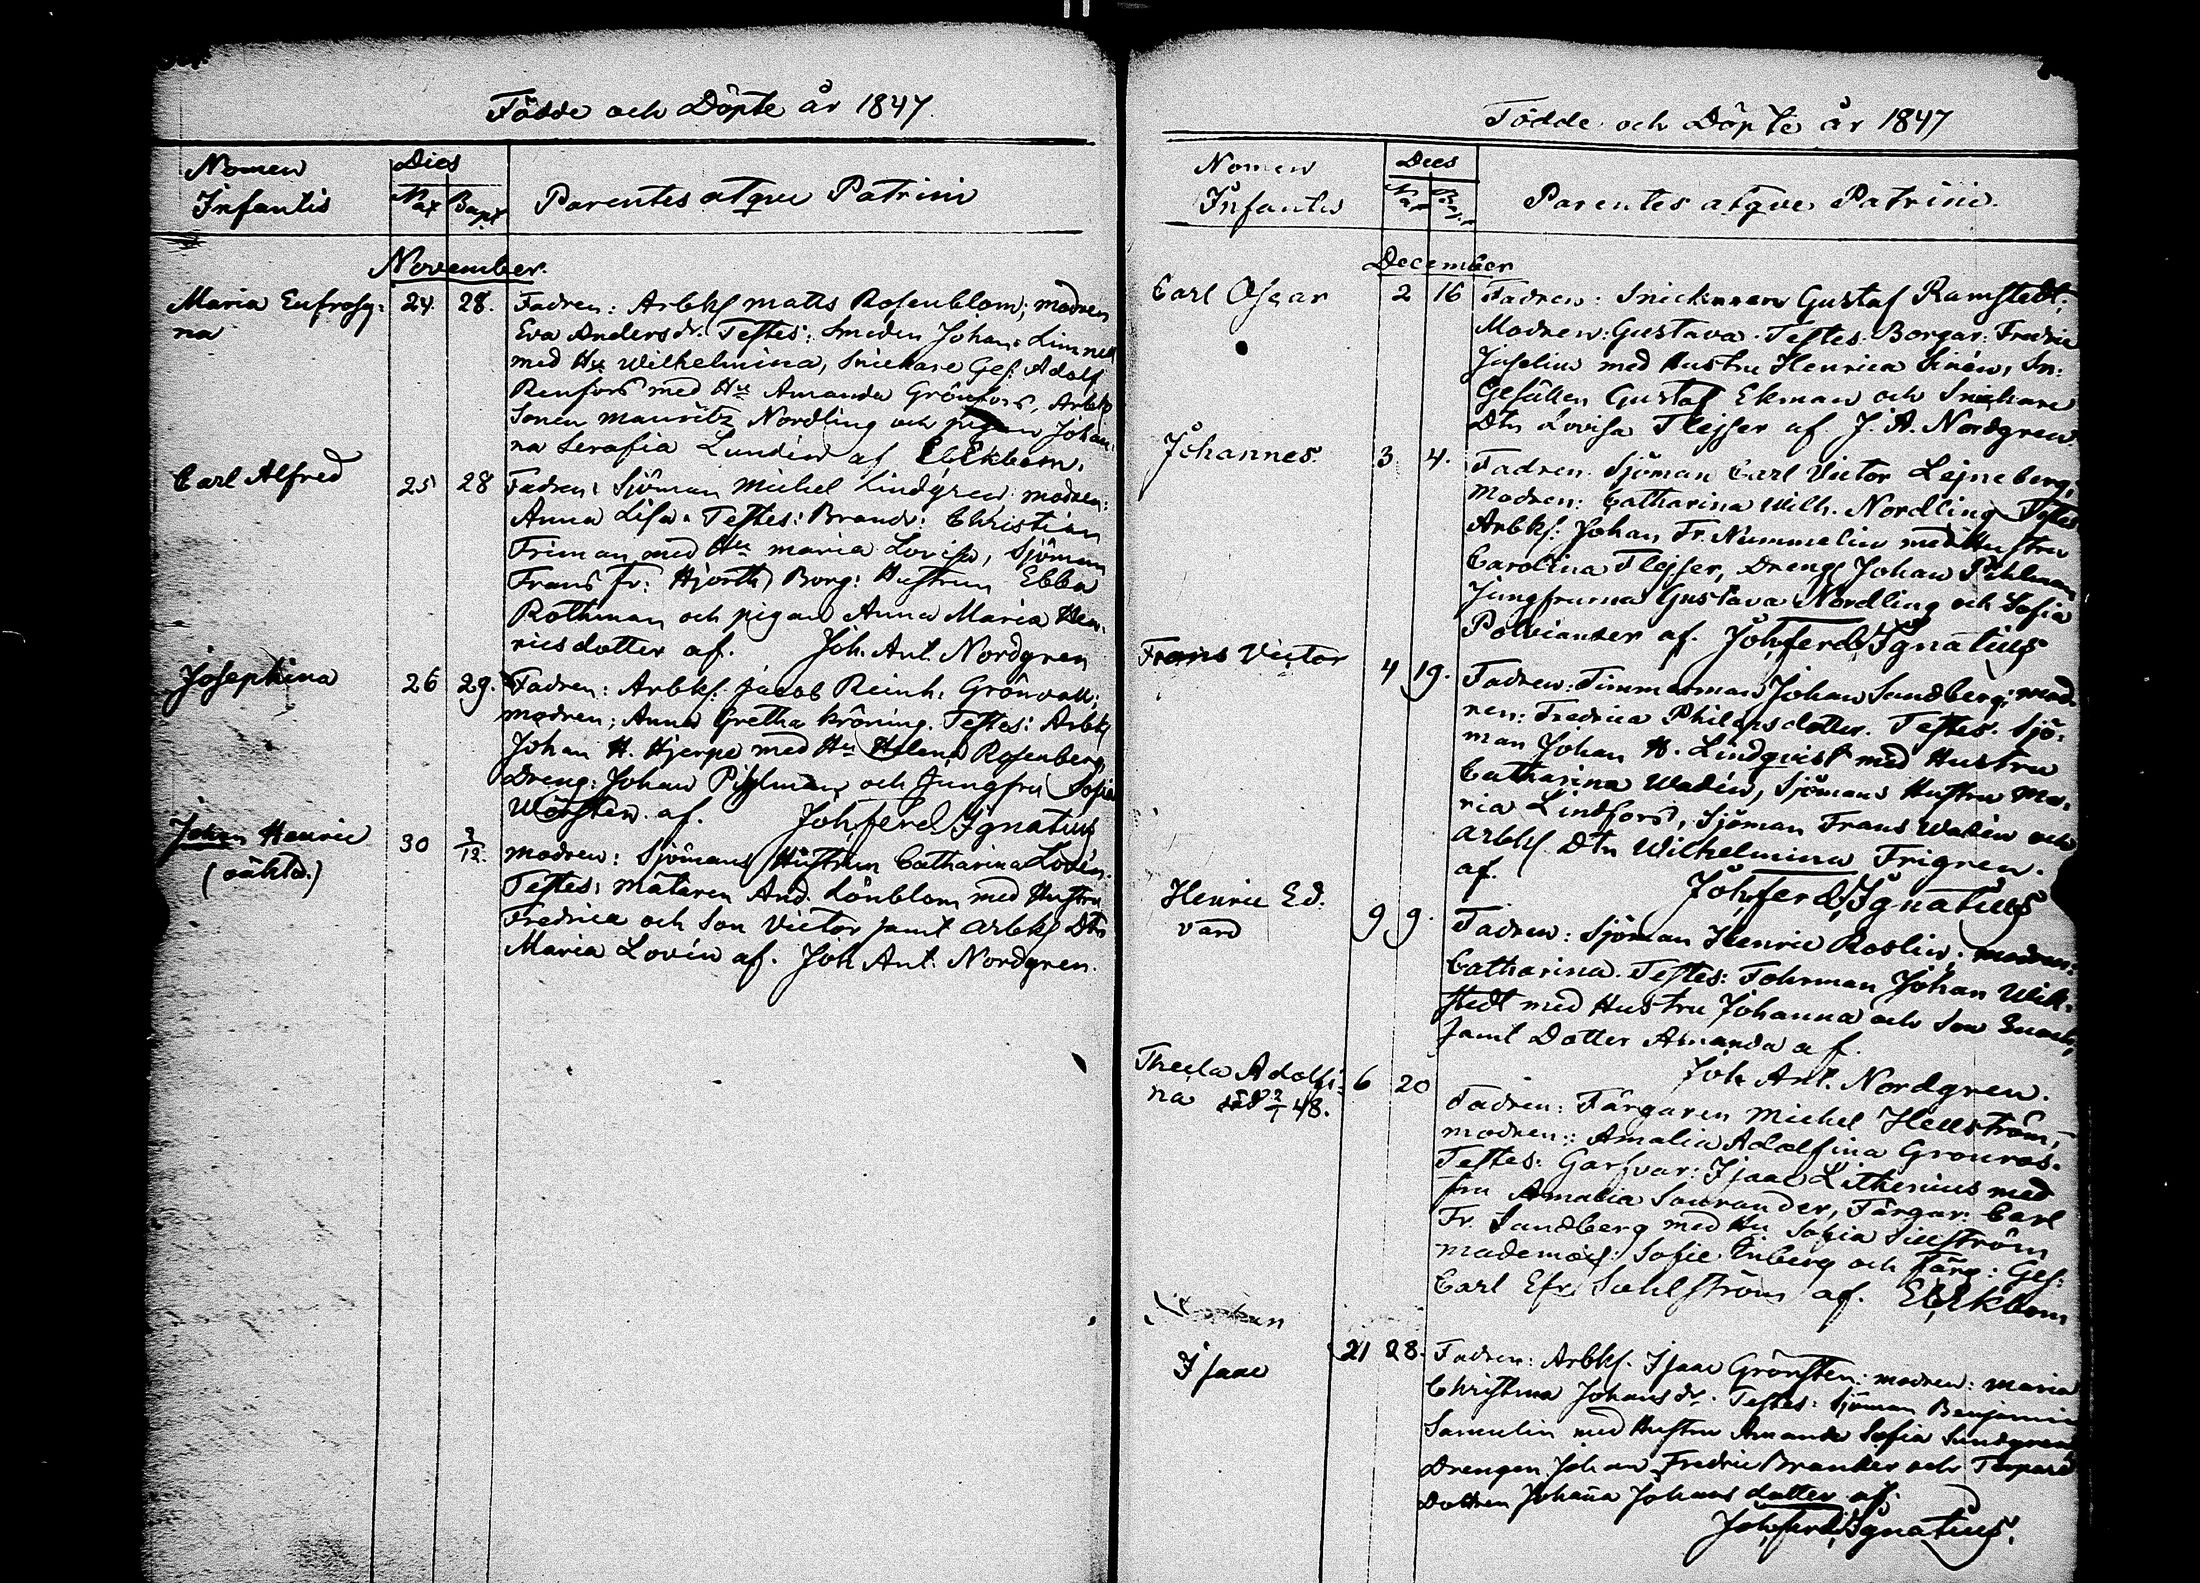 Födde och Döpte år 1847.
Nomen Infantis
Dies
Nat Bapt
Parentes atque Patrini
November.
Maria Eufrosy:
na
24. 28.
Fadren: Arbks Matts Rosenblom; modren
Eva Anders dr. Testes: Smeden Johan Limnell
med Hu Wilhelmina, Snickare Ges: Adolf
Renfors med Hu Amanda Grönfors, Arbks
Sonen Mauritz Nordling och pigan Johan
na Serafia Lundin af E Ekbom.
Carl Alfred
25 28
Fadren: Sjöman Michel Lindgren modren:
Anna Lisa. Testes: Brandv: Christian
Friman med Hu Maria Lovisa, Sjöman
Frans Fr: Hjorth, Borg: Hustrun Ebba
Rothman och pigan Anna Maria Hen:
ricsdotter af. Joh. Ant. Nordgren
Josephina
26 29.
Fadren: Arbks. Jacob Reinh: Grönvall;
modren; Anna Gretha Kröning. Testes: Arbks
Johan H. Hjerpe med Hu Helena Rosenberg,
Dreng: Johan Pihlman och Jungfru Sofia
af. Joh ferd Ignatius
Johan Henric
(oäkta.)
30 3/12.
modren: Sjömans Hustrun Catharina Lovén.
Testes: Mätaren And. Lönblom med Hustru
Fredrica och Son Victor samt Arbks Dtr
Maria Lovén af. Joh Ant. Nordgren.
Födde och Döpte år 1847
Nomen
Infantis
Dies
Nat Bapt
Parentes atque Patrini.
December
Carl Oscar
2 16
Fadren: Snickaren Gustaf Ramstedt.
Modren: Gustava. Testes. Borgar: Fredric
Juselius med Hustru Henrica Sinén, Sn:
Gesällen Gustaf Ekman och Snickare
Dtn Lovisa Flejser af J. A. Nordgren.
Johannes
3 4.
Fadren Sjöman Carl Victor Lejneberg;
Modren: Catharina Wilh. Nordling Testes
Arbks: Johan Fr. Nummelin med Hustru
Carolina Flejser, Dreng Johan Pihlman
Jungfrurna Gustava Nordling och Sofia
Polviander af. Joh ferd Ignatius
Frans Victor
4 19.
Fadren: Timmerman Johan Sundberg; mod
ren: Fredrica Philipsdotter. Testes. Sjö:
man Johan H. Lindqvist med Hustru
Catharina Wadén, Sjömans Hustru Ma:
ria Lindfors, Sjöman Frans Wadén och
Arbks. Dtn Wilhelmina Frigren.
af. Joh ferd Ignatius
Henric Ed:
vard
9 9.
Fadren: Sjöman Henric Roslin; modren:
Catharina. Testes: Fohrman Johan Wik:
stedt med Hustru Johanna och Son Enoch,
samt Dotter Amanda af.
Joh. Ant. Nordgren.
Thecla Adolfi:
na död 2/1 48.
6 20
Fadren: Färgaren Michel Hellström,
modren: Amalia Adolfina Gronroos.
Testes: Garfvar: Isaac Lithenius med
fru Amalia Sourander, Färgar: Carl
Fr. Sandberg med Hu Sofia Sillström
mademois: Sofie Enberg och Färg: Ges:
Carl Efr. Sahlström af. E Ekbom
Isaac
21 28.
Fadren: Arbks. Isaac Grönsten: modren: Maria
Christina Johans dr. Testes: Sjöman Benjamin
Samulin med Hustru Amanda Sofia Sundgren,
Drengen Johan Fredric Brander och Torpare
Dottren Johana Johans dotter af.
Joh ferd Ignatius.